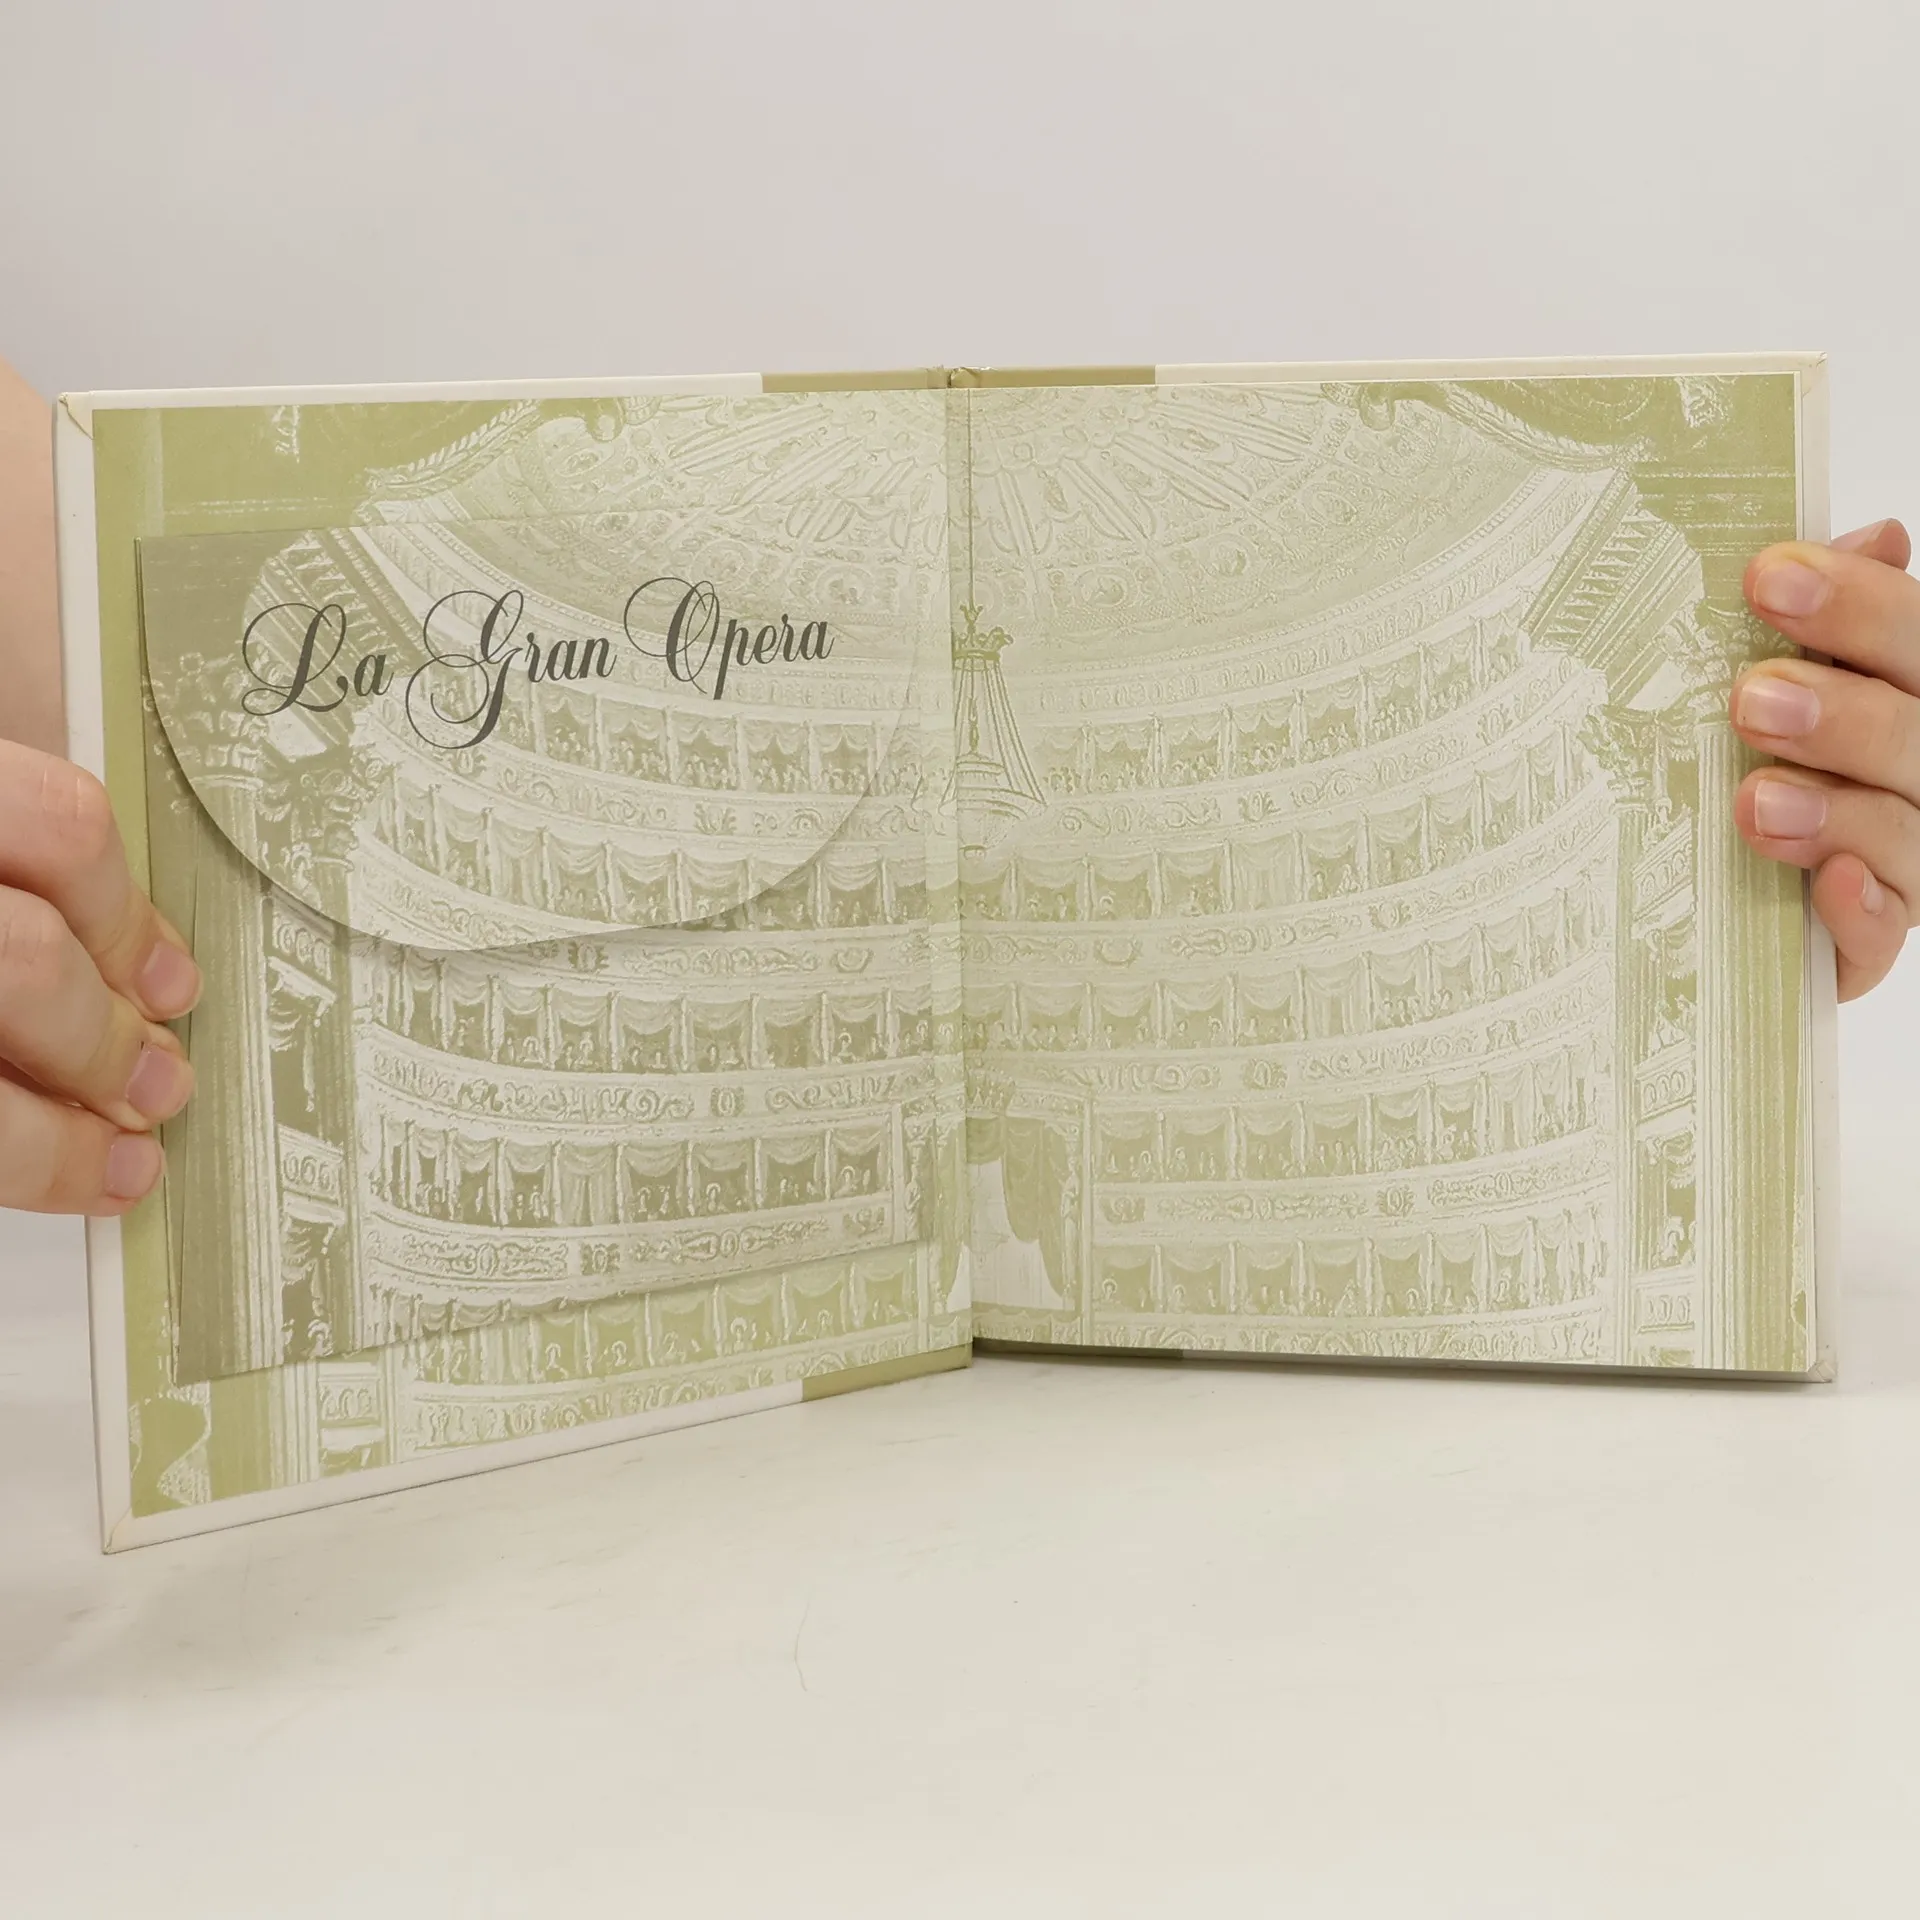 La Gran Opera